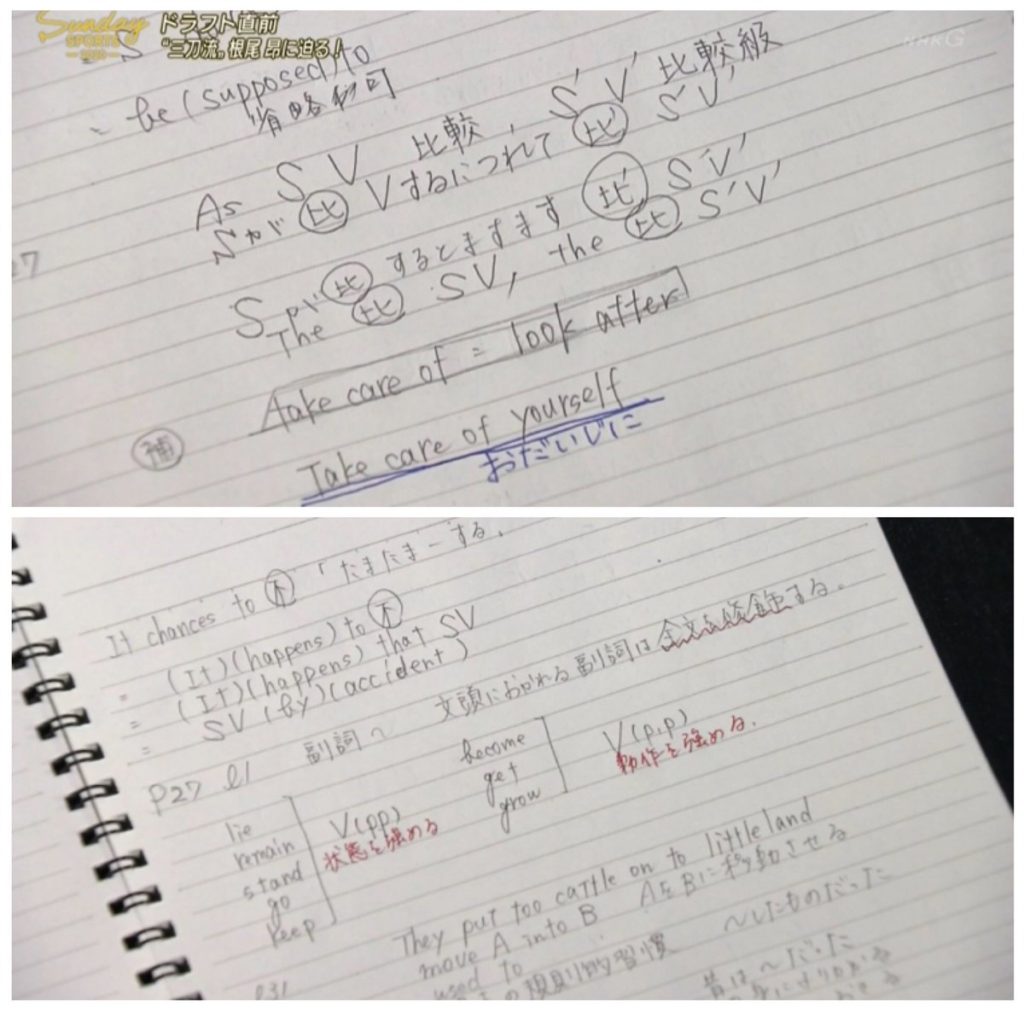 Sunday
SPORTS
ドラフト直前
"三刀流"根尾 昂に迫る!
NHK G
= be (supposed) to
省略も可
As S V 比較, S' V' 比較級
Sが 比 Vするにつれて 比' S'V'
27
Sが 比 するとますます 比' S'V'
The 比 SV, the 比 S'V'
take care of = look after
補 Take care of yourself
おだいじに
It chances to 不 「たまたま〜する.
= (It)(happens) to 不
= (It)(happens) that SV
= SV (by)(accident)
P27 l1 副詞〜 文頭におかれる副詞は全文を修飾する.
lie
remain
stand
go
keep
V(pp)
状態を強める
become
get
grow
V(p.p)
動作を強める.
They put too cattle on to little land
move A into B AをBに移動させる
used to 〜したものだった
の規則的習慣
昔は〜だった
l31